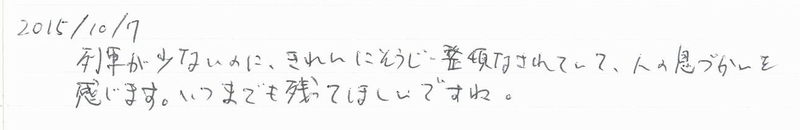 2015/10/7
列車が少ないのに、きれいにそうじ・整頓なされていて、人の息づかいを
感じます。いつまでも残ってほしいですね。